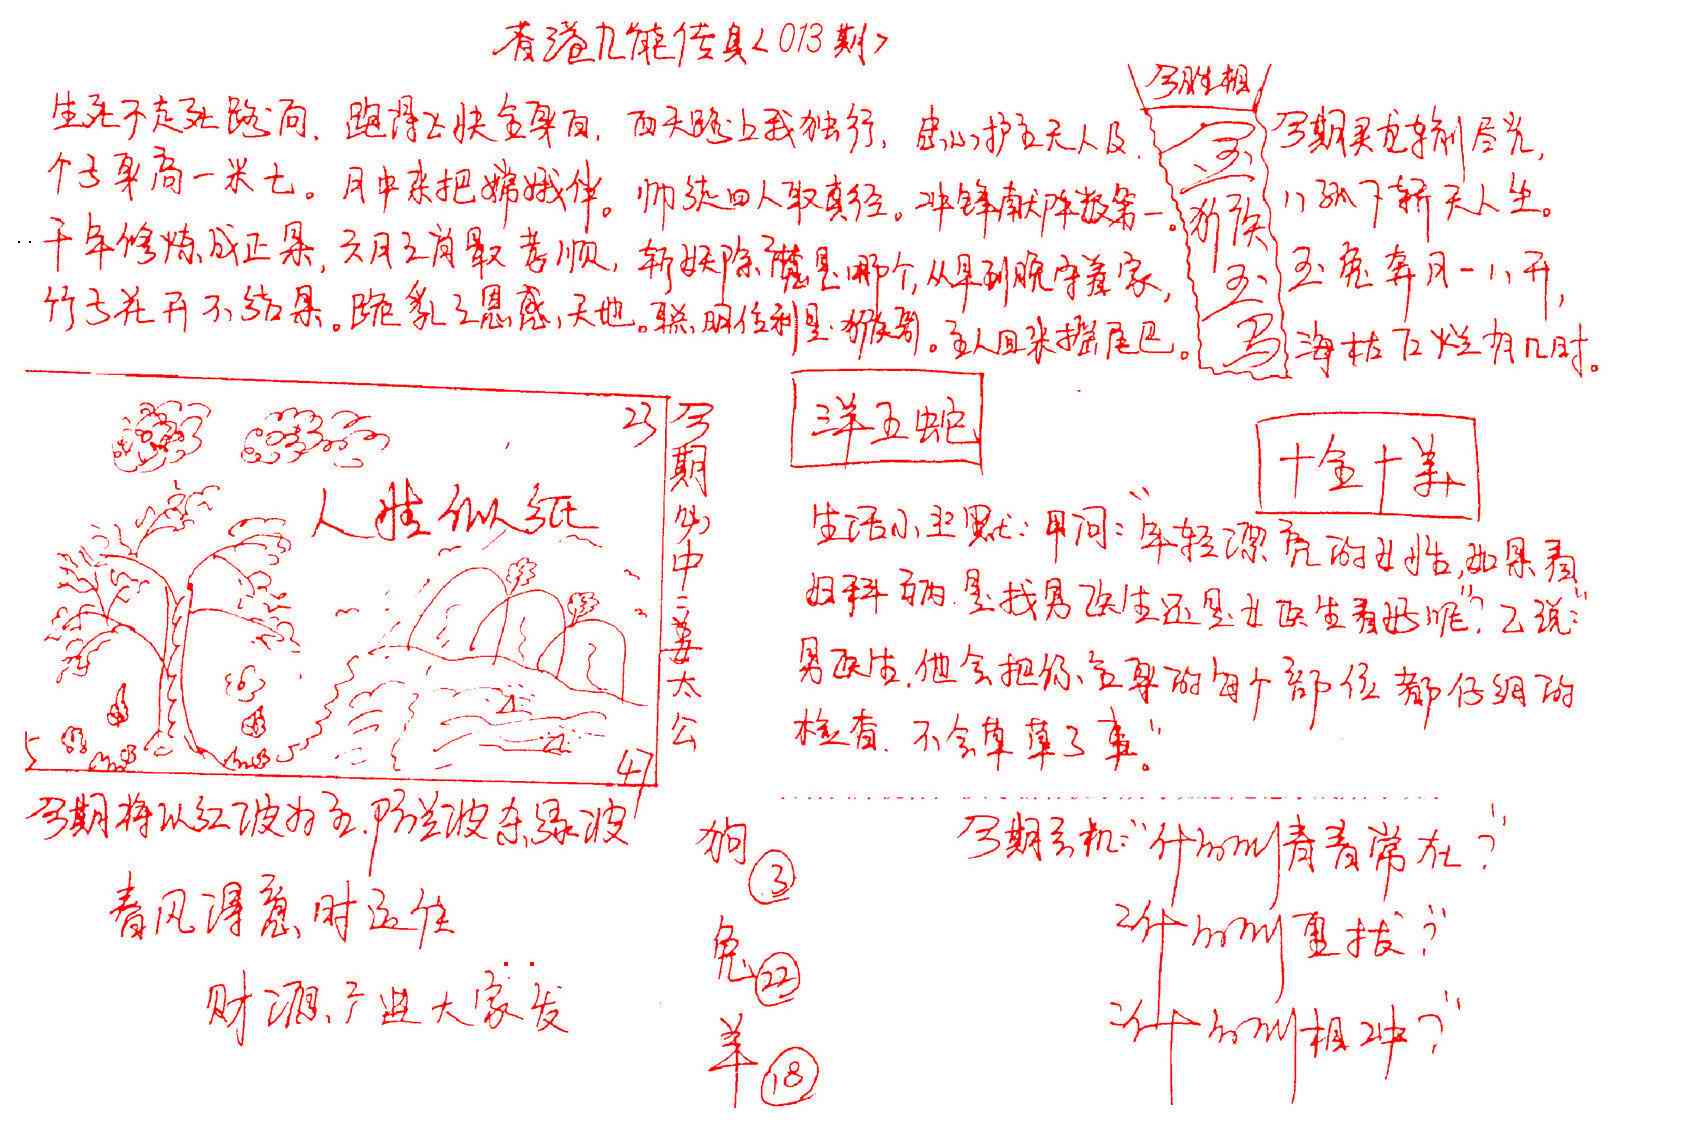 香港九龍传真<013期>
生死不走死路向，跑得飞快全身白，西天路上我独行，忠心护主无人及，
个子身高一米七。月中来把嫦娥伴。师徒四人取真经。冲锋献阵数第一。
千年修炼成正果，六月之肖最孝顺，斩妖除魔是哪个，从早到晚守着家，
竹子花开不结果。跪乳之恩感天地。聪明伶利是猴哥。主人回来摇尾巴。
今胜相
玉
猴
玉
马
今期买龙输尽光，
八孤下轿天人生。
玉兔奔月一八开，
海枯石烂有几时。
23
人性似纸
5
47
今期必中二姜太公
三羊五蛇
十全十美
生活小幽默：甲问："年轻漂亮的女性，如果看
妇科病，是找男医生还是女医生看好呢"？乙说："
男医生，他会把你全身的每个部位都仔细的
检查，不会草草了事"。
今期将以红波为主，防兰波杀绿波
春风得意时运佳
财源产业大家发
狗 3
兔 22
羊 18
今期玄机："什么叫青春常在？"
"什么叫重拔？"
"什么叫相冲？"